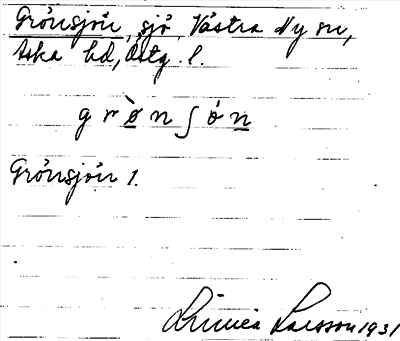 Grönsjön, sjö, Västra Ny sn,
Aska hd, Östg. l.
g r ò n ʃ ó n
Grönsjön 1.
Linnea Larsson 1931